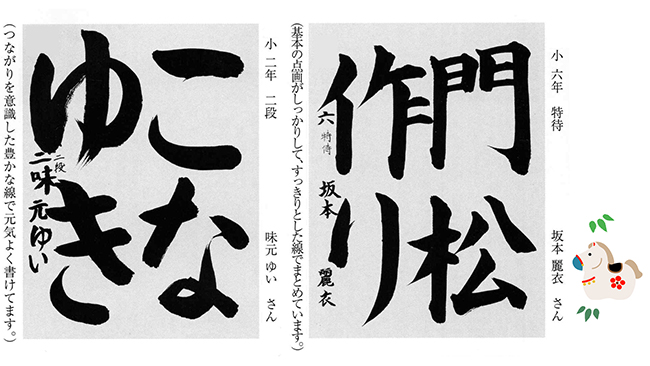 小 六年 特待 坂本 麗衣 さん
門松
作り
六 特待 坂本 麗衣
(基本の点画がしっかりして、すっきりとした線でまとめています。)
小 二年 二段 味元 ゆい さん
こな
ゆき
二 二段 味元 ゆい
(つながりを意識した豊かな線で元気よく書けてます。)